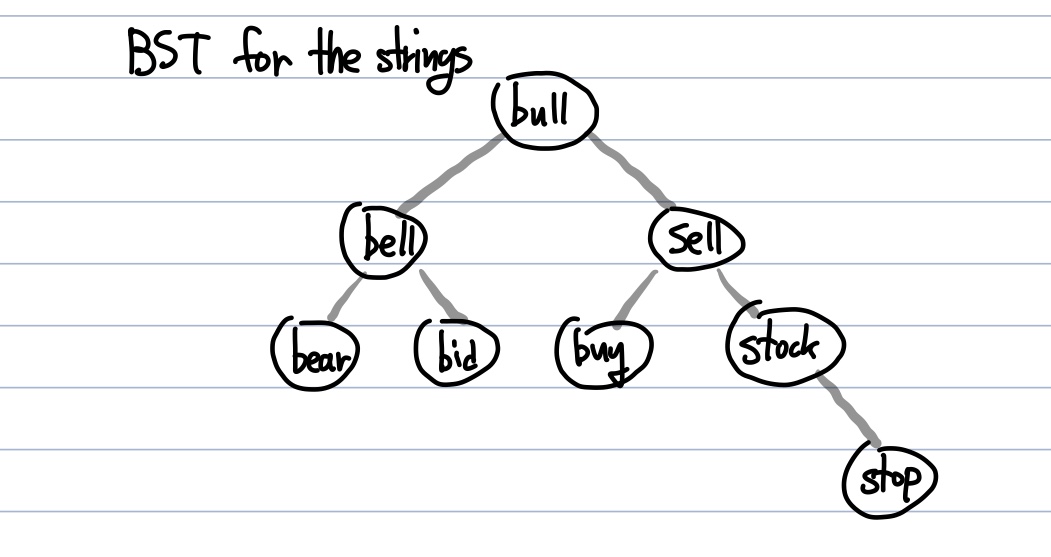 BST for the strings
bull
bell sell
bear bid buy stock
stop